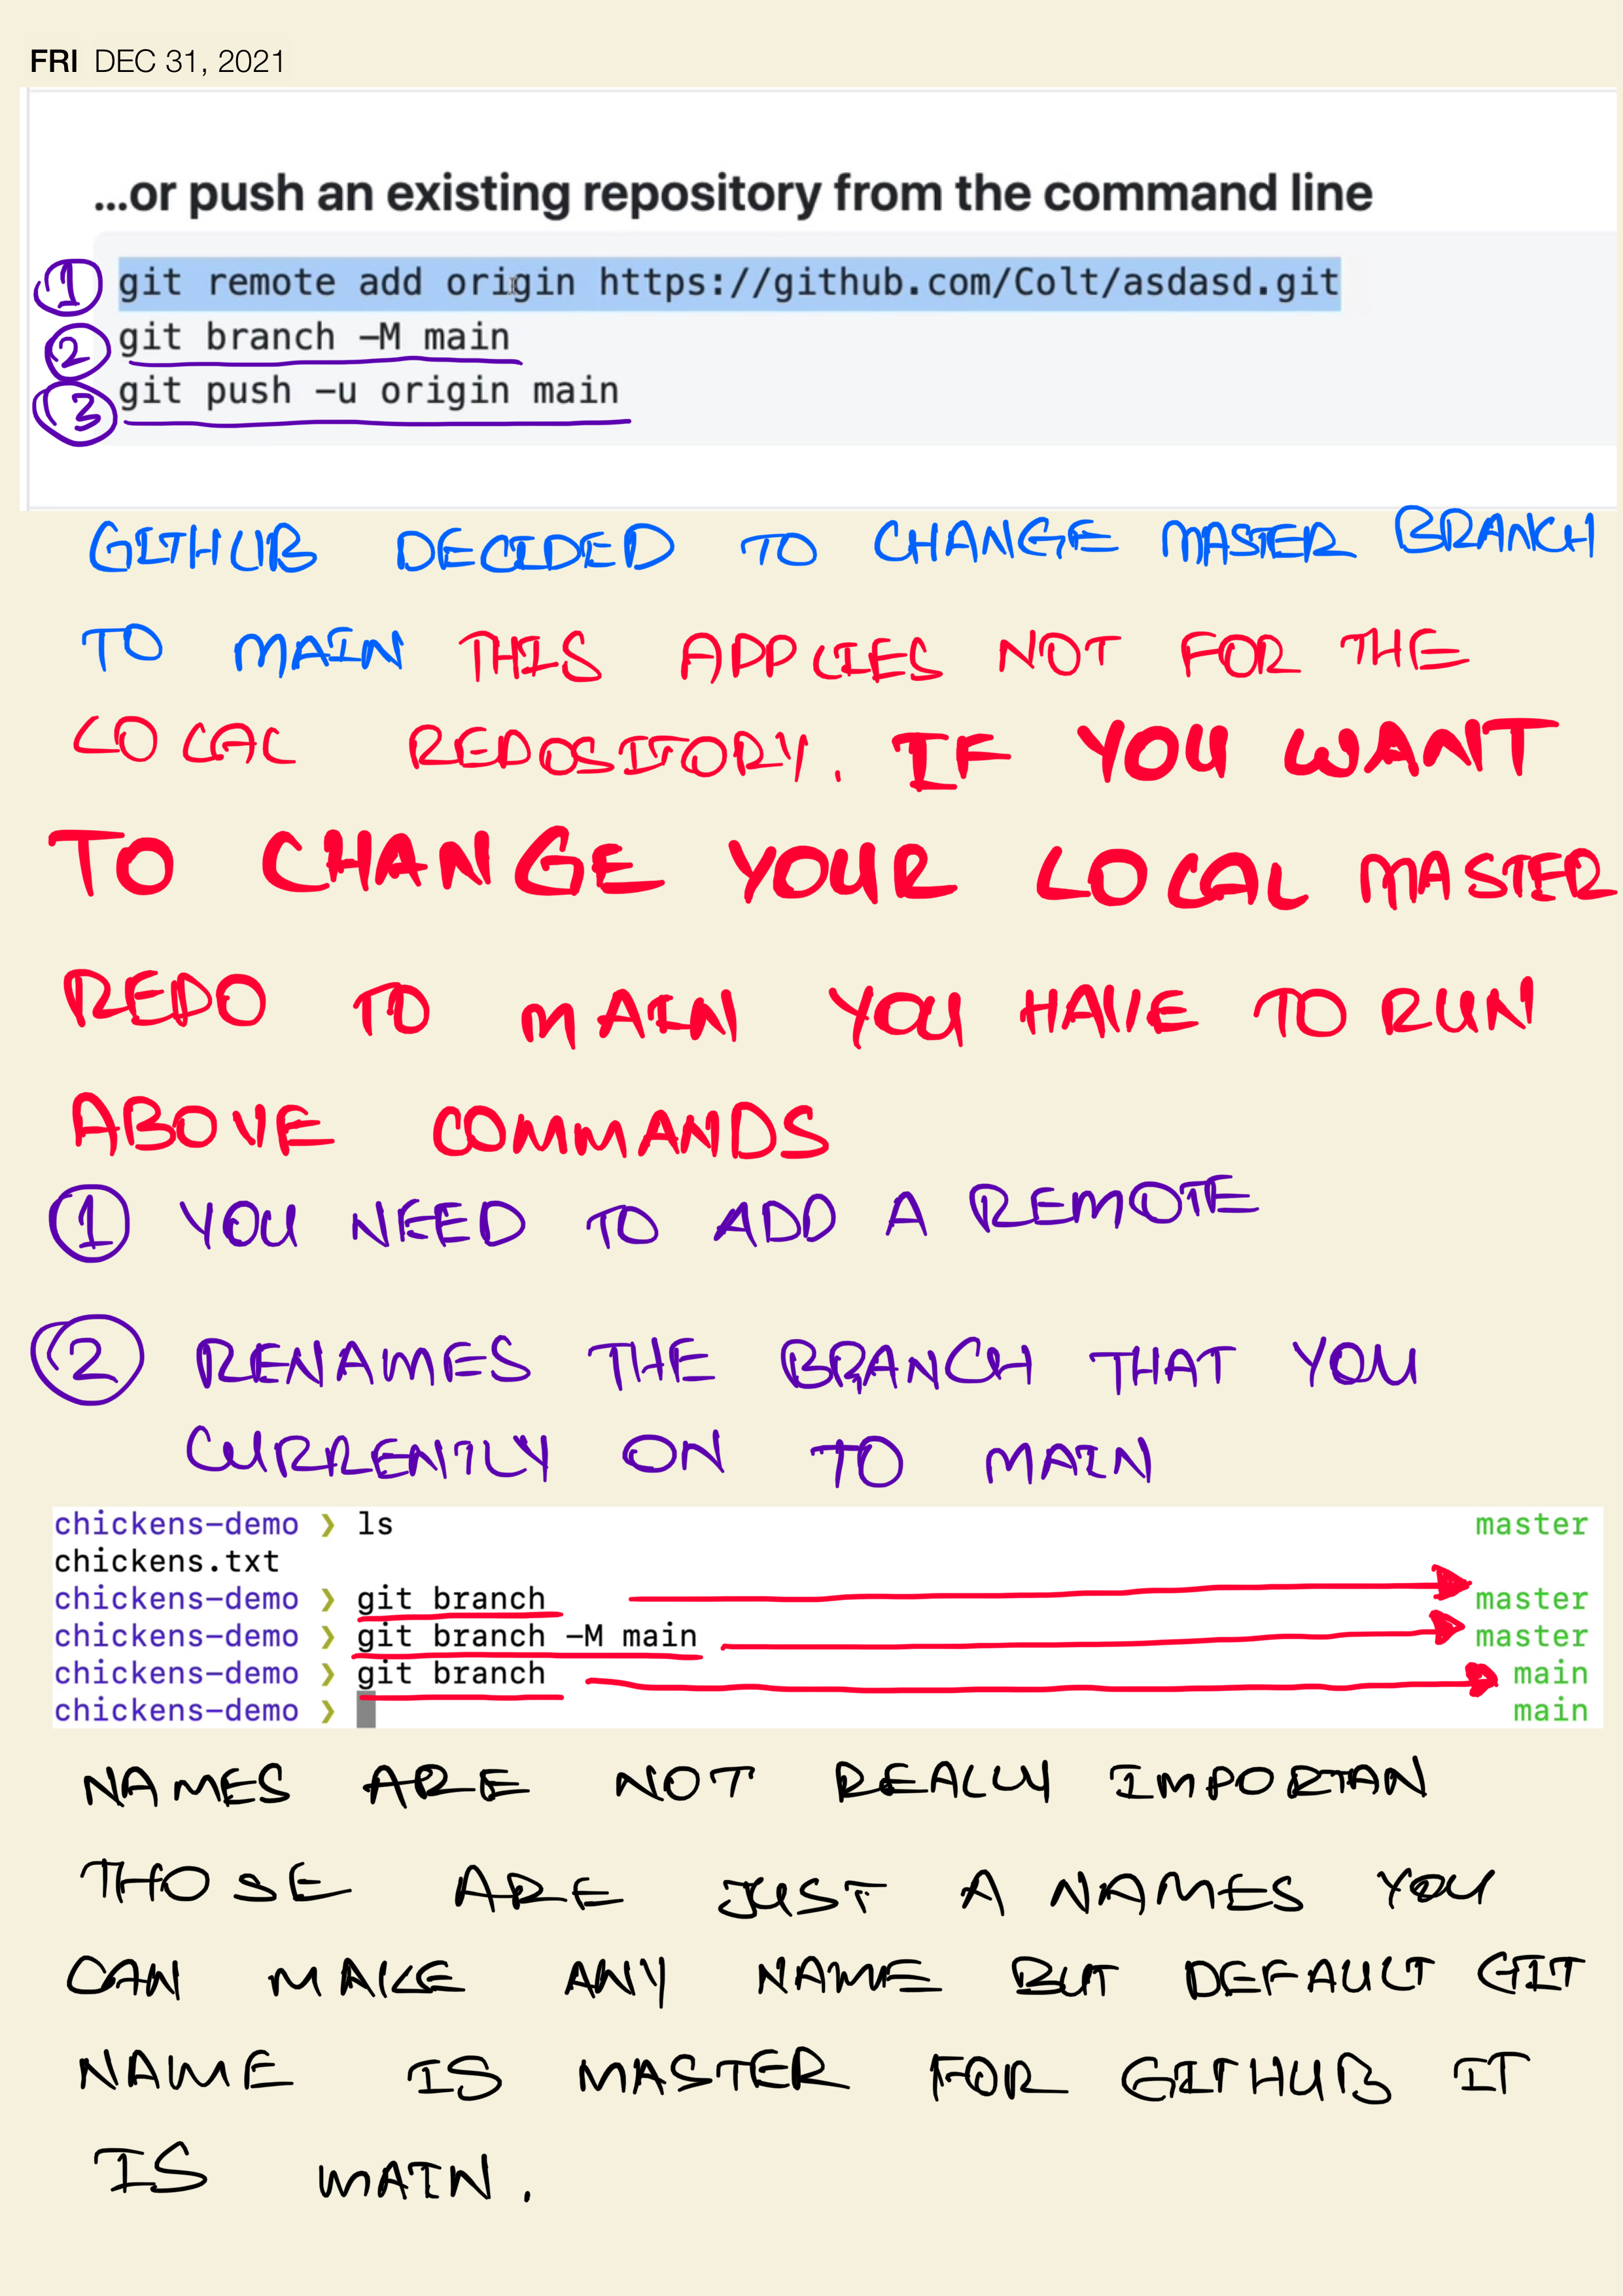 FRI DEC 31, 2021
...or push an existing repository from the command line
1 git remote add origin https://github.com/Colt/asdasd.git
2 git branch -M main
3 git push -u origin main
GITHUB DECIDED TO CHANGE MASTER BRANCH
TO MAIN THIS APPLIES NOT FOR THE
LOCAL REPOSITORY. IF YOU WANT
TO CHANGE YOUR LOCAL MASTER
REPO TO MAIN YOU HAVE TO RUN
ABOVE COMMANDS
1 YOU NEED TO ADD A REMOTE
2 RENAMES THE BRANCH THAT YOU
CURRENTLY ON TO MAIN
chickens-demo ❯ ls master
chickens.txt
chickens-demo ❯ git branch master
chickens-demo ❯ git branch -M main master
chickens-demo ❯ git branch main
chickens-demo ❯ main
NAMES ARE NOT REALLY IMPORTAN
THOSE ARE JUST A NAMES YOU
CAN MAKE ANY NAME BUT DEFAULT GIT
NAME IS MASTER FOR GITHUB IT
IS MAIN.